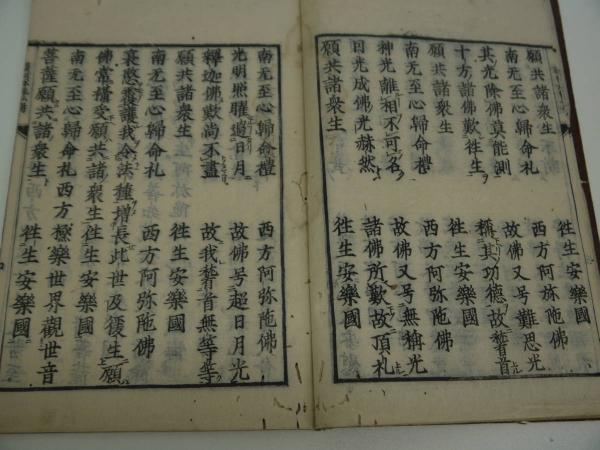 願共諸衆生　往生安樂國
南无至心歸命礼　西方阿弥陁佛
其光除佛莫能測　故佛又号難思光
十方諸佛歎往生　稱其功德故䭬首
願共諸衆生　往生安樂國
南无至心歸命禮　西方阿弥陁佛
神光離相不可名　故佛又号無稱光
因光成佛光赫然　諸佛所歎故頂礼
願共諸衆生　往生安樂國
南无至心歸命禮　西方阿弥陁佛
光明照曜過日月　故佛号超日月光
釋迦佛歎尚不盡　故我䭬首無等等
願共諸衆生　往生安樂國
南无至心歸命礼　西方阿弥陁佛
哀愍覆護我　令法種增長　此世及後生　願
佛常攝受　願共諸衆生　往生安樂國
南无至心歸命礼　西方極樂世界觀世音
菩薩　願共諸衆生　往生安樂國